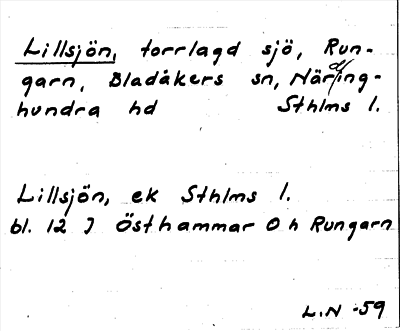 Lillsjön, torrlagd sjö, Run-
garn, Bladåkers sn, Närding-
hundra hd Sthlms l.
Lillsjön, ek Sthlms l.
bl. 12 J Östhammar O h Rungarn
L.N -59